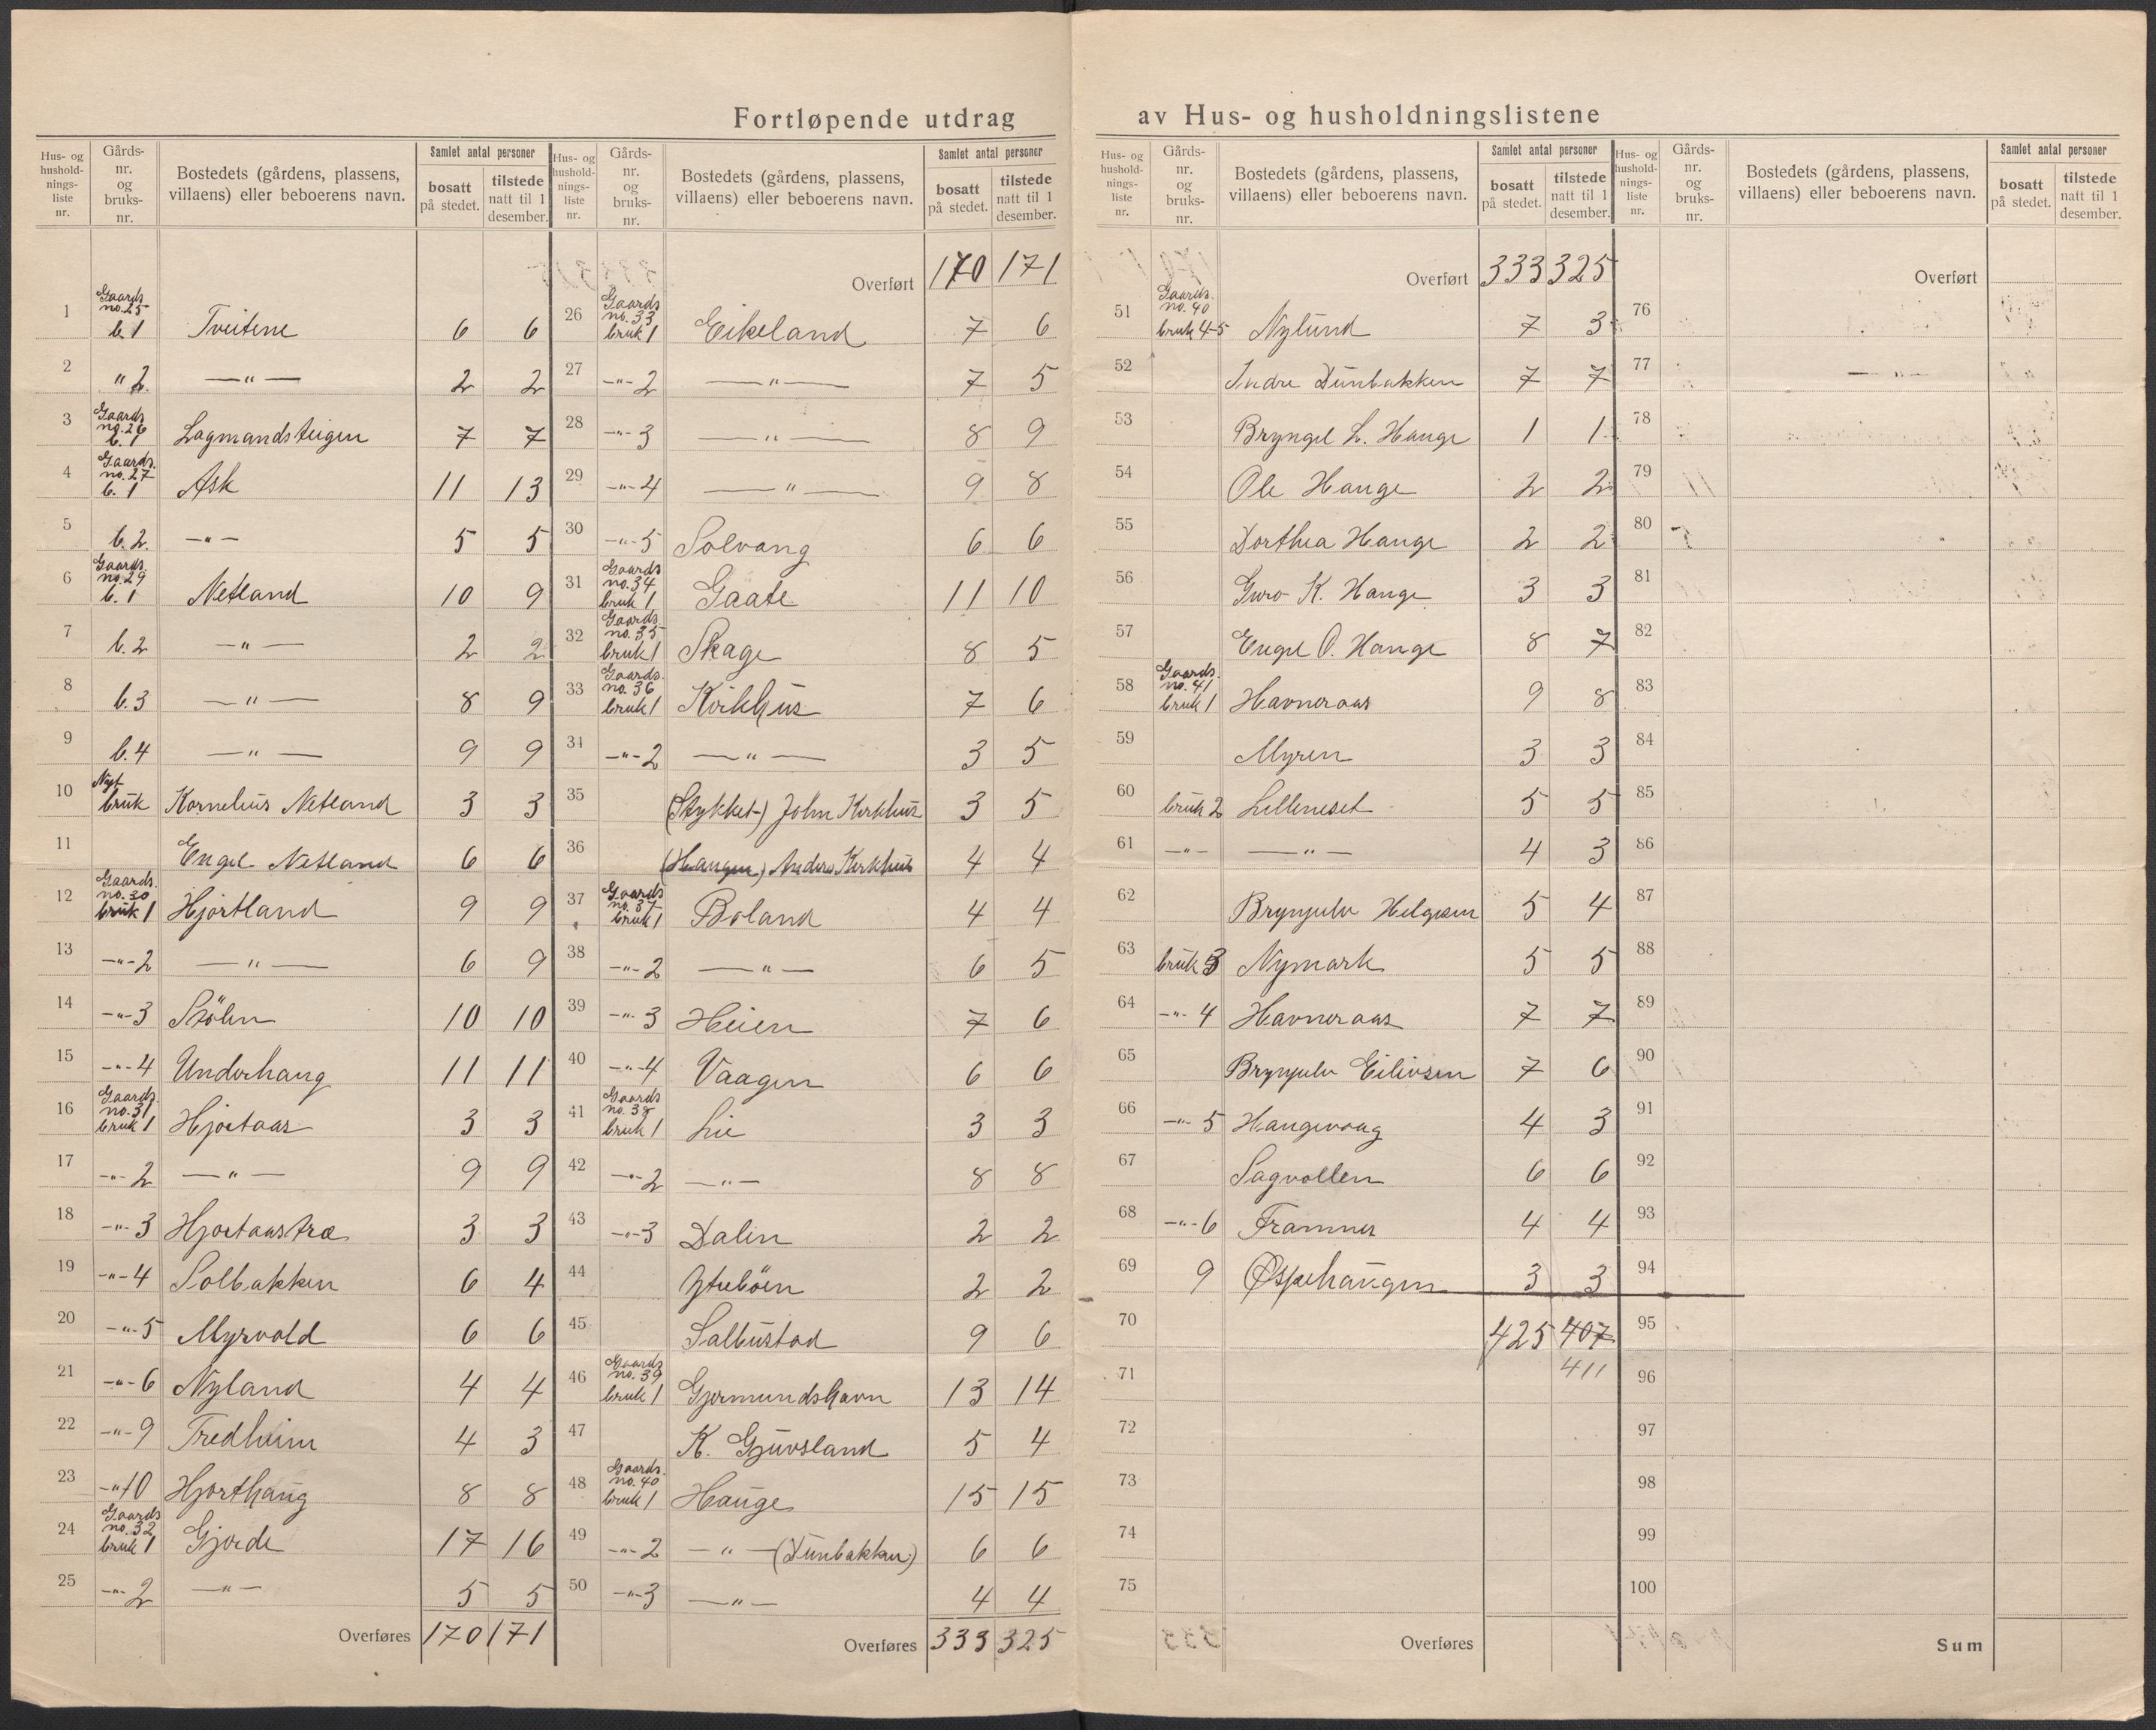 Fortløpende utdrag av Hus- og husholdningslistene
Hus- og husholdnings-liste nr. | Gårds-nr. og bruks-nr. | Bostedets (gårdens, plassens, villaens) eller beboerens navn. | Samlet antal personer: bosatt på stedet. | tilstede natt til 1 desember.
1 Gaards no. 25 b. 1 Tveitene 6 6
2 " 2. —"— 2 2
3 Gaards no. 26 b. 1 Lagmandsteigen 7 7
4 Gaards. no. 27 b. 1 Ask 11 13
5 b. 2. —"— 5 5
6 Gaards. no. 29 b. 1 Netland 10 9
7 b. 2 —"— 2 2
8 b. 3 —"— 8 9
9 b. 4 —"— 9 9
10 Nyt bruk Kornelius Netland 3 3
11 Engel Netland 6 6
12 Gaards. no. 30 bruk 1 Hjortland 9 9
13 —"— 2 —"— 6 9
14 —"— 3 Stölen 10 10
15 —"— 4 Underhaug 11 11
16 Gaards. no. 31 bruk 1 Hjortaas 3 3
17 —"— 2 —"— 9 9
18 —"— 3 Hjortaastræ 3 3
19 —"— 4 Solbakken 6 4
20 —"— 5 Myrvold 6 6
21 —"— 6 Nyland 4 4
22 —"— 9 Fredheim 4 3
23 —"— 10 Hjorthaug 8 8
24 Gaards no. 32 bruk 1 Gjerde 17 16
25 —"— 2 —"— 5 5
Overføres 170 171
Hus- og husholdnings-liste nr. | Gårds-nr. og bruks-nr. | Bostedets (gårdens, plassens, villaens) eller beboerens navn. | Samlet antal personer: bosatt på stedet. | tilstede natt til 1 desember.
Overført 170 171
26 Gaards no. 33 bruk 1 Eikeland 7 6
27 —"— 2 —"— 7 5
28 —"— 3 —"— 8 9
29 —"— 4 —"— 9 8
30 —"— 5 Solvang 6 6
31 Gaards no. 34 bruk 1 Gaate 11 10
32 Gaards. no. 35 bruk 1 Skage 8 5
33 Gaards. no. 36 bruk 1 Kirkhus 7 6
34 —"— 2 —"— 3 5
35 (Stykket) John Kirkhus 3 5
36 (Haugen) Anders Kirkhus 4 4
37 Gaards no. 37 bruk 1 Boland 4 4
38 —"— 2 —"— 6 5
39 —"— 3 Heien 7 6
40 —"— 4 Vaagen 6 6
41 Gaards no. 38 bruk 1 Lie 3 3
42 —"— 2 —"— 8 8
43 —"— 3 Dalen 2 2
44 Ytreböen 2 2
45 Salbustad 9 6
46 Gaards no. 39 bruk 1 Gjermundshavn 13 14
47 K. Gjuvsland 5 4
48 Gaards. no. 40 bruk 1 Hauge 15 15
49 —"— 2 —"— (Dunbakken) 6 6
50 —"— 3 —"— 4 4
Overføres 333 325
Hus- og husholdnings-liste nr. | Gårds-nr. og bruks-nr. | Bostedets (gårdens, plassens, villaens) eller beboerens navn. | Samlet antal personer: bosatt på stedet. | tilstede natt til 1 desember.
Overført 333 325
51 Gaards. no. 40 bruk 4-5 Nylund 7 3
52 Indre Dunbakken 7 7
53 Bryngel L. Hauge 1 1
54 Ole Hauge 2 2
55 Dorthea Hauge 2 2
56 Guro K. Hauge 3 3
57 Engel O. Hauge 8 7
58 Gaards. no. 41 bruk 1 Havneraas 9 8
59 Myren 3 3
60 bruk 2 Lilleneset 5 5
61 —"— —"— 4 3
62 Brynjulv Helgesen 5 4
63 bruk 3 Nymark 5 5
64 —"— 4 Havneraas 7 7
65 Brynjulv Eilivsen 7 6
66 —"— 5 Haugevaag 4 3
67 Sagvollen 6 6
68 —"— 6 Framnes 4 4
69 9 Øspehaugen 3 3
70 425 407
71 411
72
73
74
75
Overføres
Hus- og husholdnings-liste nr. | Gårds-nr. og bruks-nr. | Bostedets (gårdens, plassens, villaens) eller beboerens navn. | Samlet antal personer: bosatt på stedet. | tilstede natt til 1 desember.
Overført
76
77
78
79
80
81
82
83
84
85
86
87
88
89
90
91
92
93
94
95
96
97
98
99
100
Sum